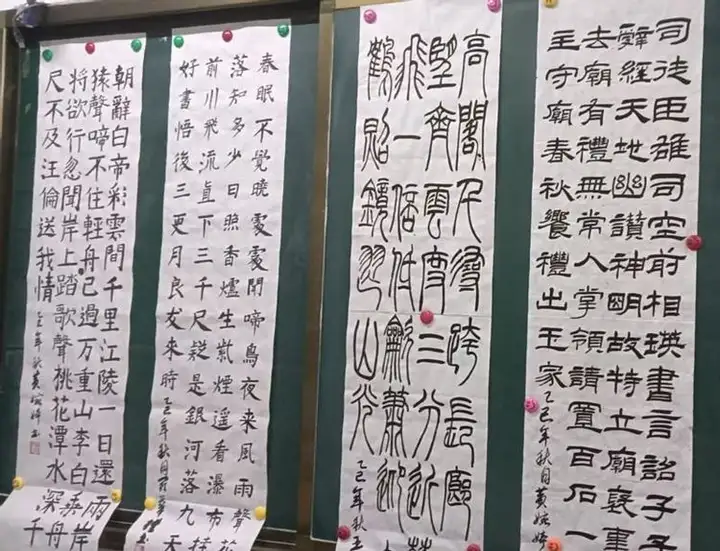 司徒臣雄司空前相瑛書言詔子
辭經天地幽讚神明故特立廟褒
去廟有禮無常人掌領請置百石一
主守廟春秋饗禮出王家
乙巳年秋月黃婉婷
高閣千尋跨長廊
望齊雲度三分近
飛一信低龢蕭
鶴照鏡迎山光
乙巳年秋
春眠不覺曉處處聞啼鳥夜來風雨聲花
落知多少日照香爐生紫煙遙看瀑布掛
前川飛流直下三千尺疑是銀河落九天
好書悟後三更月良友來時
乙巳年秋月
朝辭白帝彩雲間千里江陵一日還兩岸
猿聲啼不住輕舟已過萬重山李白乘舟
將欲行忽聞岸上踏歌聲桃花潭水深千
尺不及汪倫送我情
乙巳年秋黃婉婷書